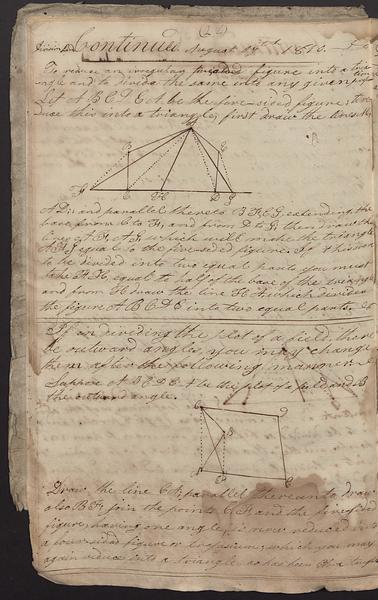 Continued August 14th 1810.
To reduce an irregular figure into a tria
angle and to divide the same into any given
Let A B C D E be the five-sided figure, to re
duce this into a triangle, first draw the lines
A D, and parallel thereto B F, E G, extending the
base from C to F, and from D to G; then draw the
lines A F, A G, which will make the triangle
A F G equal to the five sided figure. If this is
to be divided into two equal parts you must
take F H, equal to half of the base of the triangle
and from H draw the line H A, which divides
the figure A B C D E into two equal parts.
If in dividing the plot of a field, there
be outward angles, you may change
them after the following manner.
Suppose A B C D E to be the plot of a field and B
the outward angle.
Draw the line C A, parallel thereunto draw
also B F, join the points C F, and the five sided
figure, having one angle, is now reduced into
a four sided figure or trapezium; which you may
again reduce into a triangle as has been